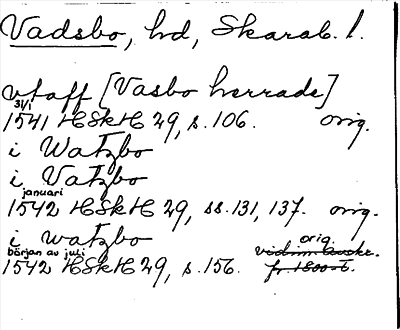 Vadsbo, hd, Skarab. l.
vtaff [Vasbo herrade]
31/1
1541 HSkH 29, s. 106. orig.
i Watzbo
i Vatzbo
januari
1542 HSkH 29, ss. 131, 137. orig.
i watzbo
början av juli orig.
1542 HSkH 29, s. 156. fr. 1800-t.